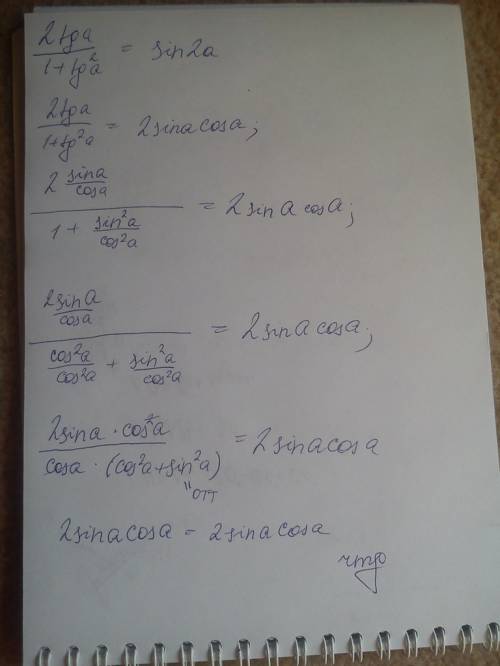 2tga / 1+tg²a = sin2a
2tga / 1+tg²a = 2sinacosa;
2 sina/cosa / 1 + sin²a/cos²a = 2sina cosa;
2sina/cosa / cos²a/cos²a + sin²a/cos²a = 2sina cosa;
2sina · cos²a / cosa · (cos²a+sin²a) = 2sinacosa
"ОТТ
2sinacosa = 2sinacosa
чтд